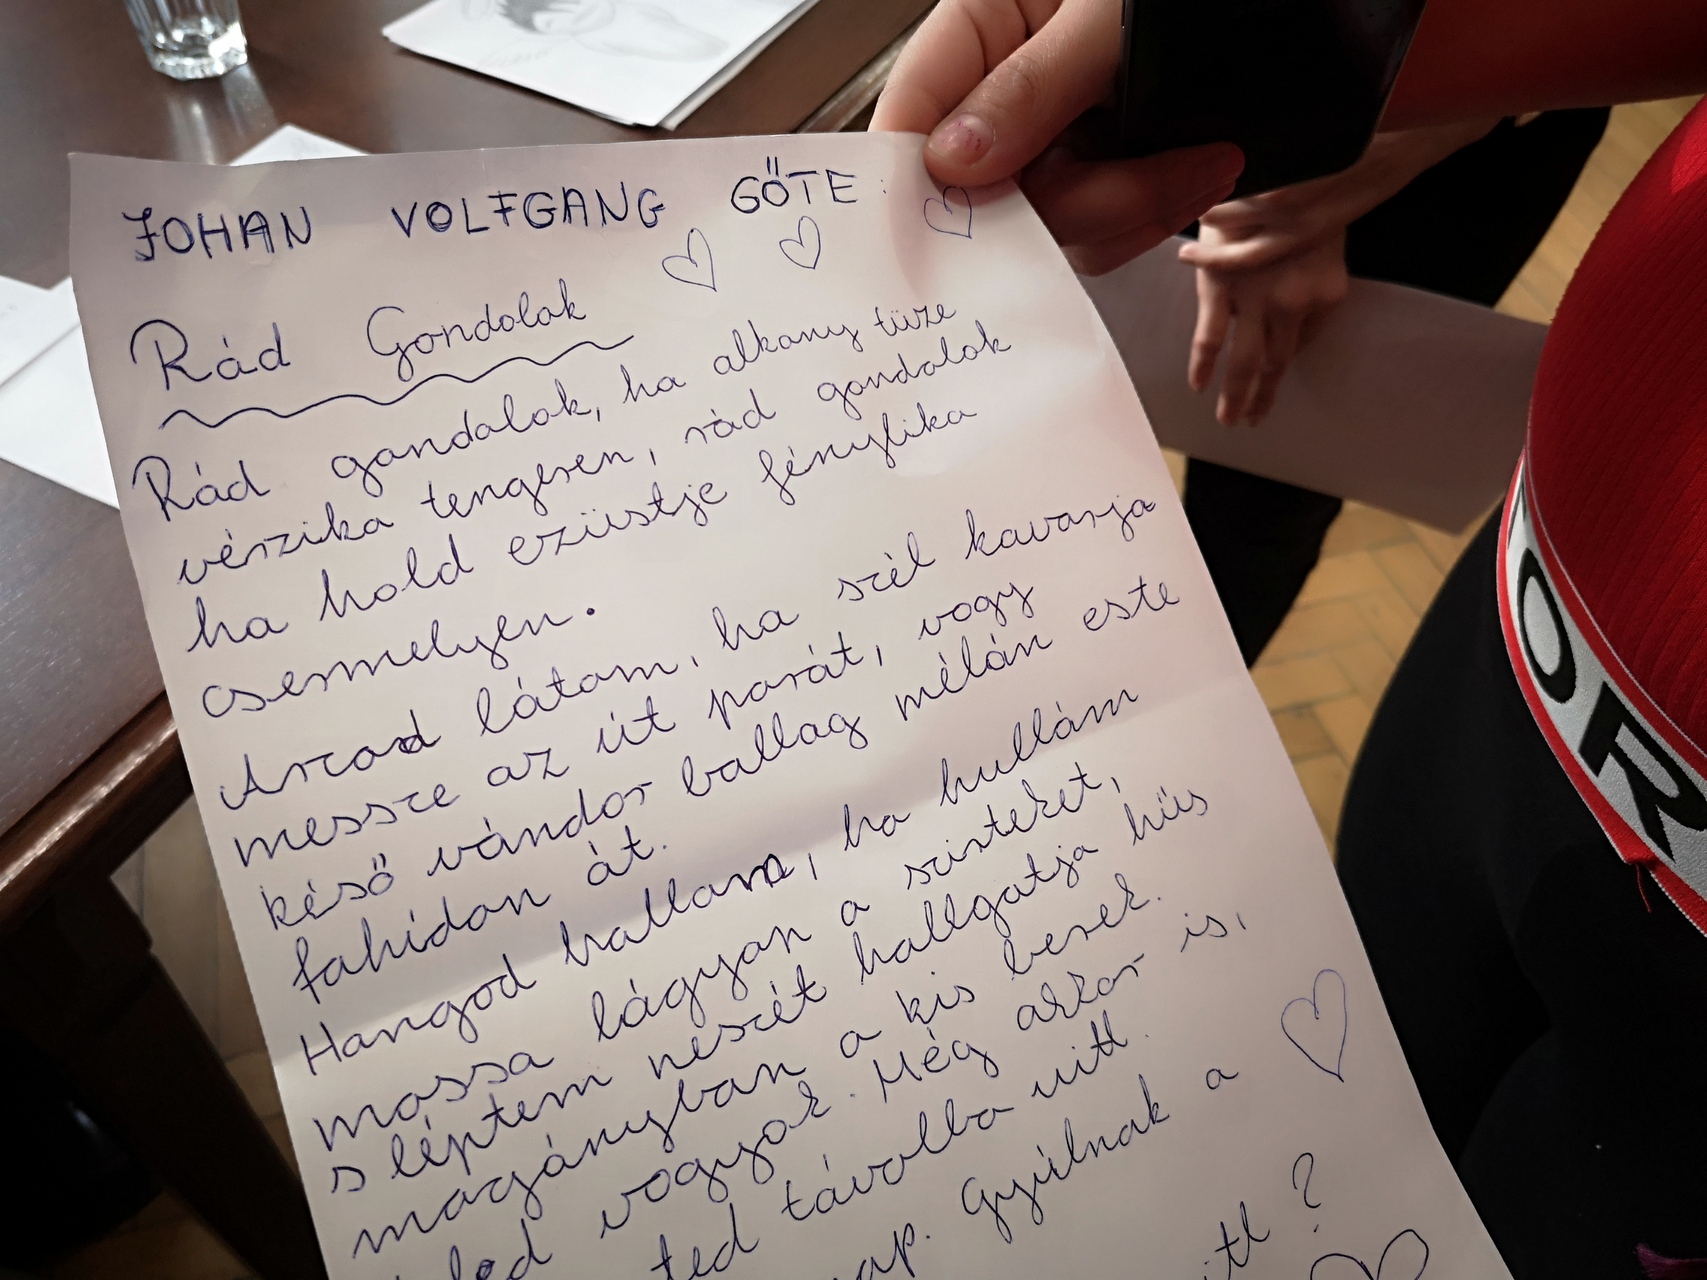 JOHAN VOLFGANG GŐTE:
Rád Gondolok
Rád gondalok, ha alkony tüze
vérzika tengeren, rád gondalok
ha hold ezüstje fénylika
csermelyen.
Arcod látom, ha szél kavarja
messze az út porát, vogy
késő vándor ballag mélán este
fahídon át.
Hangod hallom, ha hullám
mossa lágyan a szirteket,
s léptem neszét hallgatja hűs
magányban a kis berek.
led vogyok. Még akkor is,
ted távolba vitt.
nap. Gyúlnak a
itt?
OR